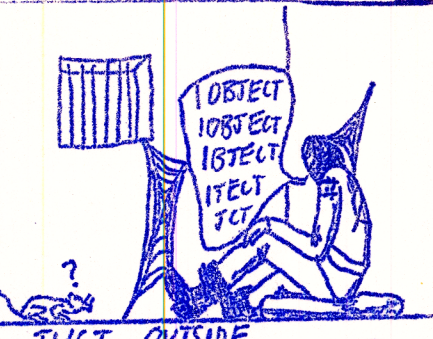 I OBJECT
IOBJECT
IBJECT
ITECT
JCT
?
JUST OUTSIDE